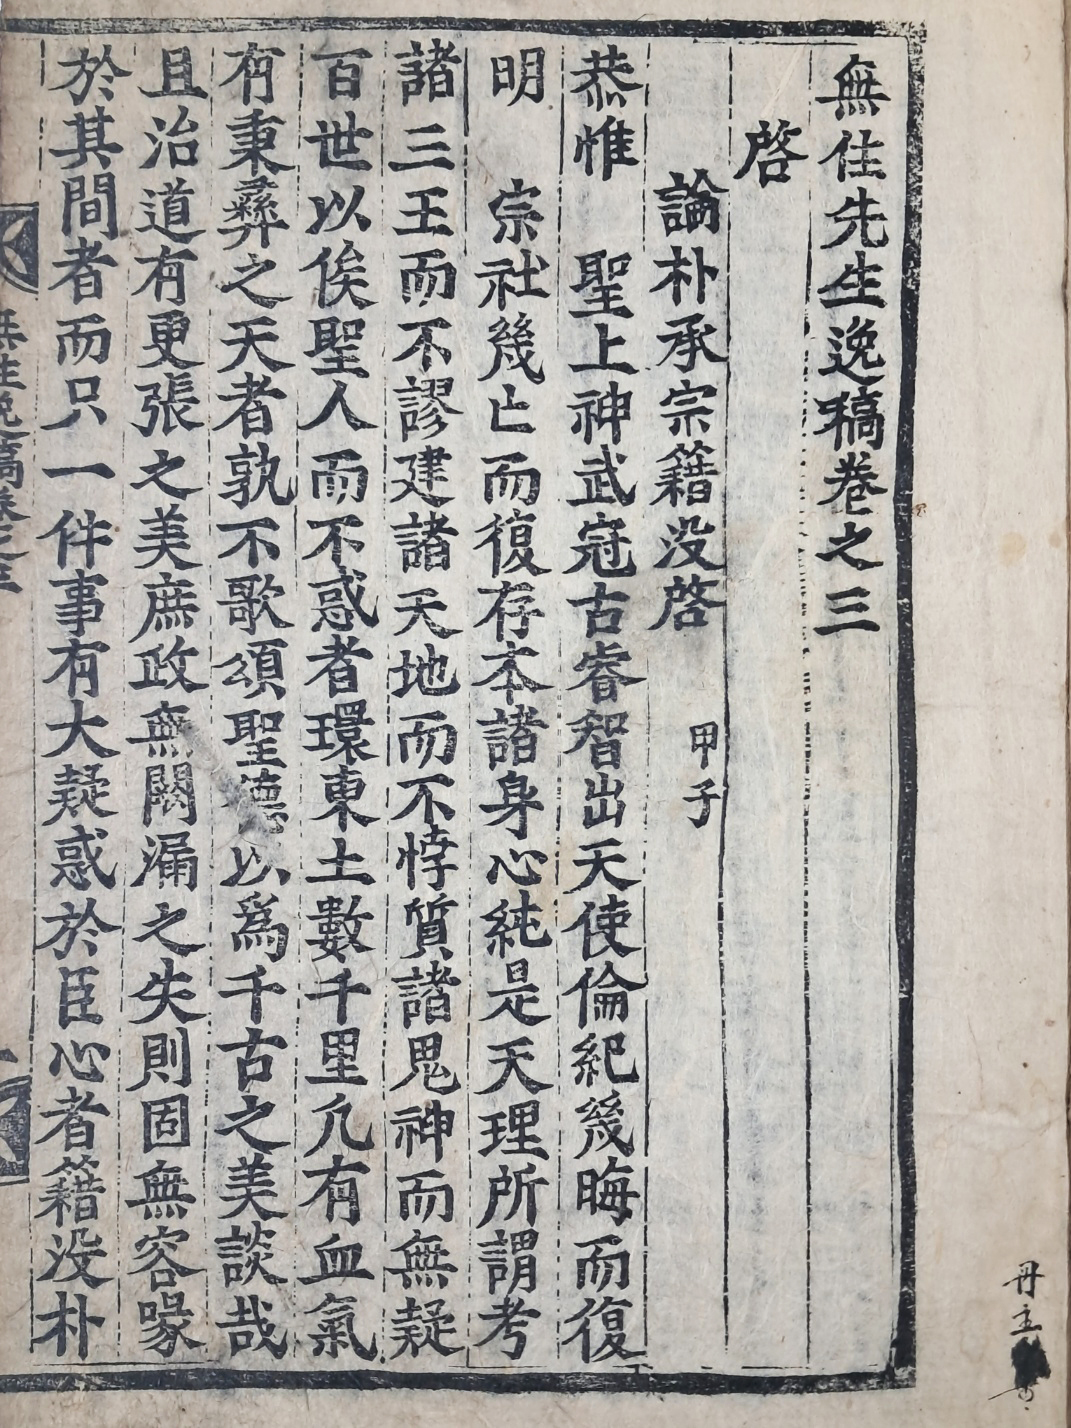 無住先生逸稿卷之三
啓
論朴承宗籍没啓 甲子
恭惟 聖上神武冠古睿智出天使倫紀幾晦而復
明 宗社幾亡而復存本諸身心純是天理所謂考
諸三王而不謬建諸天地而不悖質諸鬼神而無疑
百世以俟聖人而不惑者環東土數千里凢有血氣
有秉彛之天者孰不歌頌聖德以爲千古之美談哉
且治道有更張之美庶政無闕漏之失則固無容喙
於其間者而只一件事有大疑惑於臣心者籍没朴
無住逸稿卷之三
册主